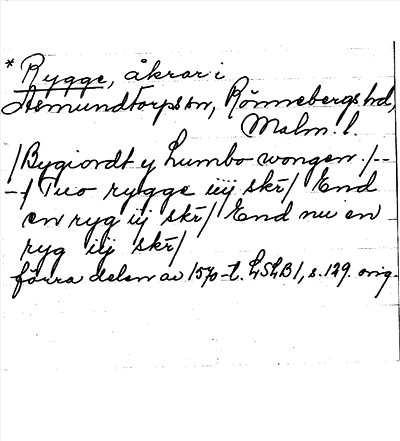 * Rygge, åkrar i
Asmundtorps sn, Rönnebergs hd,
Malm. l.
/Bygiordt y Lumbo wongen./--
-/ Tuo rygge iiij skr/ End
en ryg iij skr/ End nu en
ryg iij skr/
förra delen av 1570-t. LSLB 1, s. 129. orig.